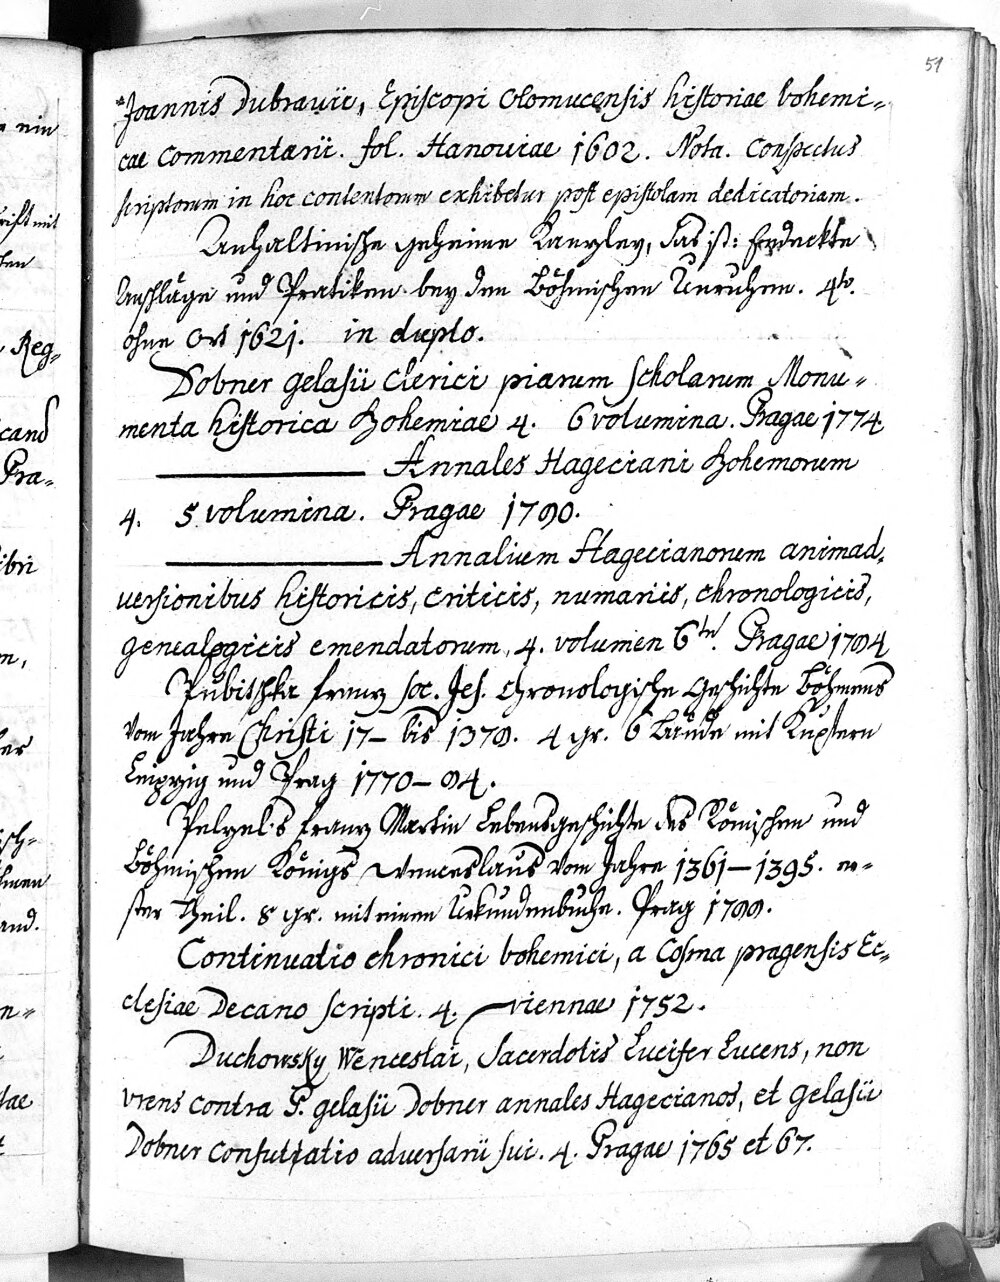 51
Joannis Dubravii, Episcopi Olomucensis historiae bohemi-
cae Commentarii. fol. Hanoviae 1602. Nota. Conspectus
scriptorum in hoc contentorum exhibetur post epistolam dedicatoriam.
Anhaltinische geheime Kanzley, das ist: Endeckte
Anschläge und Pratiken bey den Böhmischen Unruhen. 4to.
ohne Ort 1621. in duplo.
Dobner Gelasii Clerici piarum scholarum Monu-
menta historica Bohemiae 4. 6 volumina. Pragae 1774.
Annales Hageciani Bohemorum
4. 5 volumina. Pragae 1790.
Annalium Hagecianorum animad,
versionibus historicis, criticis, numariis, chronologicis,
genealogicis emendatorum, 4. volumen 6tu. Pragae 1794
Pubitschka Franz soc. Jes. Chronologische Geschichte Böhmens
vom Jahre Christi 17– bis 1379. 4 gr. 6 Bände mit Kupfern
Leipzig und Prag 1770–94.
Pelzel's Franz Martin Lebensgeschichte des Römischen und
Böhmischen Königs Wenceslaus vom Jahre 1361–1395. er-
ster Theil. 8 gr. mit einem Urkundenbuche. Prag 1799.
Continuatio chronici bohemici, a Cosma pragensis Ec-
clesiae Decano scripti. 4. viennae 1752.
Duchowsky Wenceslai, Sacerdotis Lucifer Lucens, non
vrens contra P. Gelasii Dobner annales Hagecianos, et Gelasii
Dobner Confutatio adversarii sui. 4. Pragae 1765 et 67.
nin
Reg-
cand
Pra-
ibri
hmen
and.
tae